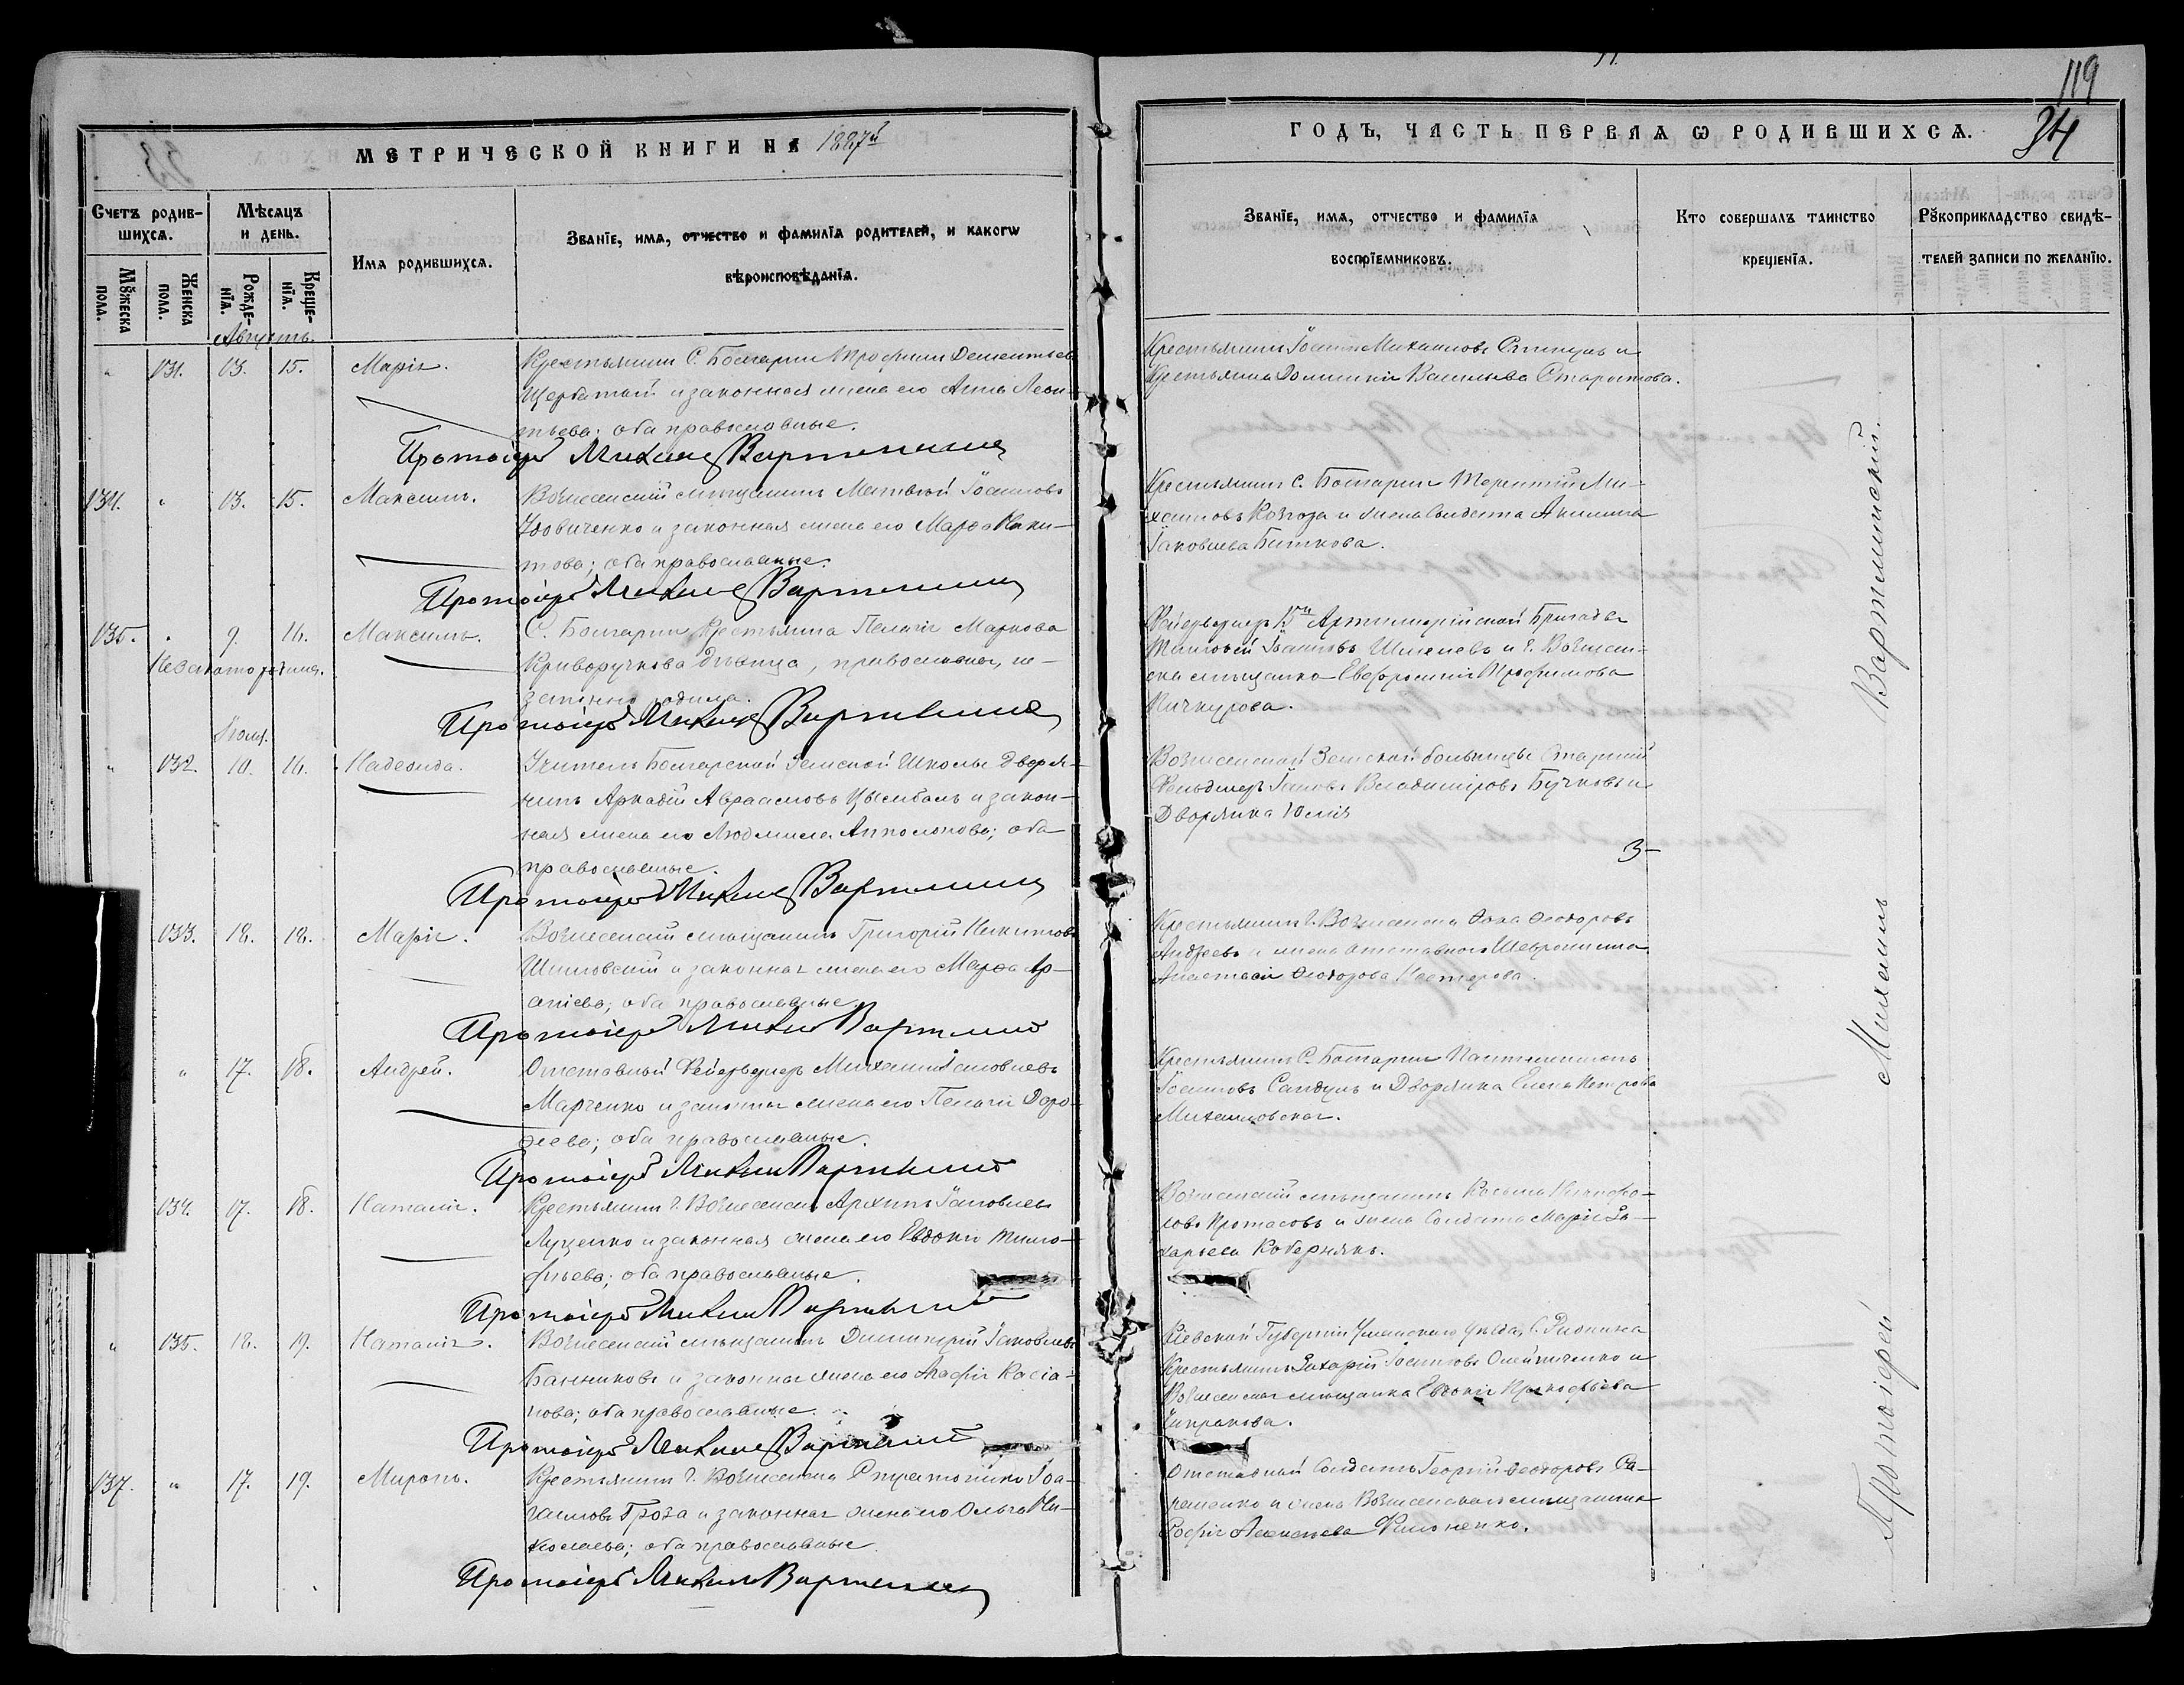 119
34
МЕТРИЧЕСКОЙ КНИГИ НА 1887й
ГОДЪ, ЧАСТЬ ПЕРВАЯ Ѡ РОДИВШИХСЯ.
Счетъ родив-
шихся.
Мѣсяцъ
и день.
Мꙋжеска
пола.
Женска
пола.
Рожде-
нїя.
Креще-
нїя.
Имя родившихся.
Званїе, имя, отчество и фамилїя родителей, и какогѡ
вѣроисповѣданїя.
Званїе, имя, отчество и фамилїя
воспрїемниковъ.
Кто совершалъ таинство
крещенїя.
Рꙋкоприкладство свидѣ-
телей записи по желанїю.
Августъ.
" 131. 13. 15. Марія.
Крестьянинъ С. Болгарки Трофимъ Дементьев
Щербатый и законная жена его Анна Леон-
тьева; оба православные.
Протоіерей Михаилъ Вартминскій
Крестьянинъ Іоаннъ Михаиловъ и
Крестьянка Домникія Васильева Старостова.
134. " 13. 15. Максимъ.
Вознесенскій мѣщанинъ Матвѣй Іоанновъ
Удовиченко и законная жена его Марѳа Ники-
това; оба православные.
Протоіерей Михаилъ Вартминскій
Крестьянинъ С. Болгарки Терентій Ми-
хаиловъ и жена Солдата Акилина
Іаковлева Биткова.
135. " 9. 16. Максимъ.
Незаконорожден.
С. Болгарки Крестьянка Пелагія Маркова
Криворучкова дѣвица, православная, не-
законно родила.
Протоіерей Михаилъ Вартминскій
Фейерверкеръ 15й Артиллерійской Бригады
Іоанновъ и г. Вознесен-
ска мѣщанка Евфросинія Трофимова
Пичкурова.
" 132. 10. 16. Надежда.
Учитель Болгарской Земской Школы Дворя-
нинъ Аркадій Авраамовъ Цымбалъ и закон-
ная жена его Людмила Апполонова; оба
православные.
Протоіерей Михаилъ Вартминскій
Вознесенской Земской больницы Старшій
Фельдшеръ Іаковъ Владиміровъ Бучковъ и
Дворянка Юлія
З-
133. 12. 18. Марія.
Вознесенскій мѣщанинъ Григорій Никитовъ
Шиловскій и законная жена его Марѳа Ар-
сеніева; оба православные.
Протоіерей Михаилъ Вартминскій
Крестьянинъ г. Вознесенска Ѳома Ѳеодоровъ
Андреевъ и жена отставного
Анастасія Ѳеодорова Нестерова.
" 17. 18. Андрей.
Отставный Фейерверкеръ Михаилъ Іаковлевъ
Марченко и законная жена его Пелагія Доро-
ѳеева; оба православные.
Протоіерей Михаилъ Вартминскій
Крестьянинъ С. Болгарки Пантелеимонъ
Іоанновъ Сандулъ и Дворянка Елена Петрова
Михаиловская.
134. 17. 18. Наталія.
Крестьянинъ г. Вознесенска Архипъ Іаковлевъ
Луценко и законная жена его Евдокія Тимо-
ѳьева; оба православные.
Протоіерей Михаилъ Вартминскій
Вознесенскій мѣщанинъ Косьма Никифо-
ровъ Протасовъ и жена Солдата Марія За-
харьева Кобернякъ.
" 135. 18. 19. Наталія.
Вознесенскій мѣщанинъ Димитрій Іаковлевъ
Банниковъ и законная жена его Агафія Касіа-
нова; оба православные.
Протоіерей Михаилъ Вартминскій
Кіевской Губерніи Уманскаго уѣзда, С.
Крестьянинъ Захарій Іоанновъ Олейниченко и
Вознесенская мѣщанка Евдокія Прокофьева
137. " 17. 19. Миронъ.
Крестьянинъ г. Вознесенска Стратоникъ Іоа-
кимовъ Гроза и законная жена его Ольга Ни-
колаева; оба православные.
Протоіерей Михаилъ Вартминскій
Отставный Солдатъ Георгій Ѳеодоровъ
и жена Вознесенскаго мѣщанина
Софія Алексѣева Филоненко.
Протоіерей Михаилъ Вартминскій.